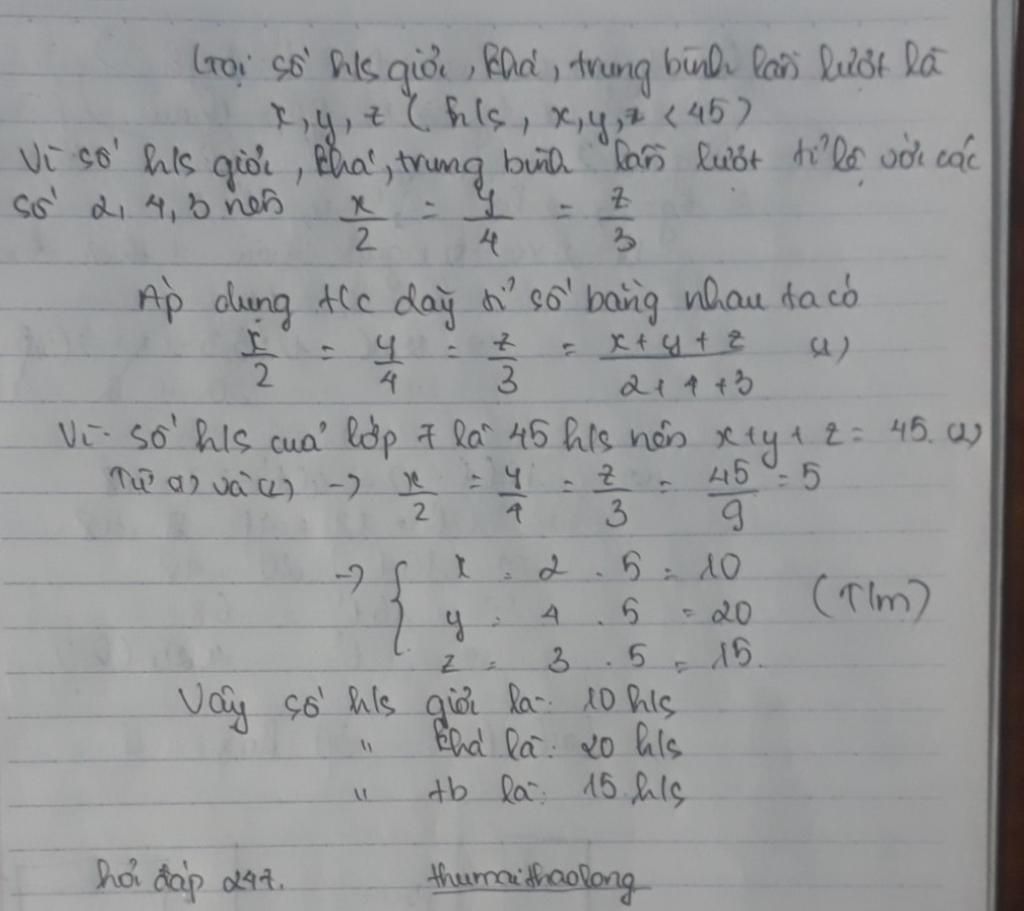 Gọi số h/s giỏi, khá, trung bình lần lượt là
x, y, z ( h/s, x,y,z < 45)
Vì số h/s giỏi, khá, trung bình lần lượt tỉ lệ với các
số 2, 4, 3 nên x/2 = y/4 = z/3
Áp dụng t/c dãy tỉ số bằng nhau ta có
x/2 = y/4 = z/3 = (x+y+z)/(2+4+3) (1)
Vì số h/s của lớp 7 là 45 h/s nên x+y+z = 45. (2)
Từ (1) và (2) → x/2 = y/4 = z/3 = 45/9 = 5
→ { x = 2 . 5 = 10
y = 4 . 5 = 20 (T/m)
z = 3 . 5 = 15.
Vậy số h/s giỏi là: 10 h/s
" khá là: 20 h/s
" tb là: 15 h/s
hỏi đáp 247. thumaithaolong